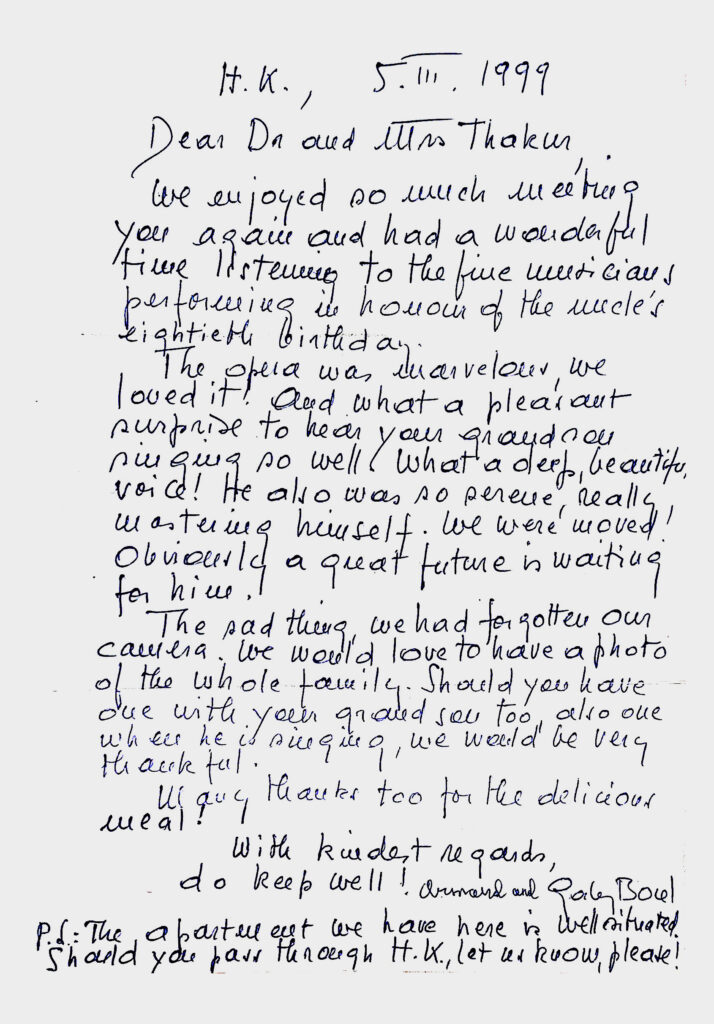 H.K., 5.III.1999
Dear Dr and Mrs Thakur,
We enjoyed so much meeting
you again and had a wonderful
time listening to the fine musicians
performing in honour of the uncle's
eightieth birthday.
The opera was marvelous, we
loved it! And what a pleasant
surprise to hear your grandson
singing so well! What a deep, beautiful
voice! He also was so serene, really
mastering himself. We were moved!
Obviously a great future is waiting
for him!
The sad thing, we had forgotten our
camera. We would love to have a photo
of the whole family. Should you have
one with your grandson too, also one
when he is singing, we would be very
thankful.
Many thanks too for the delicious
meal!
With kindest regards,
do keep well! Armand and
P.S.: The apartment we have here is well situated.
Should you pass through H.K., let us know, please!